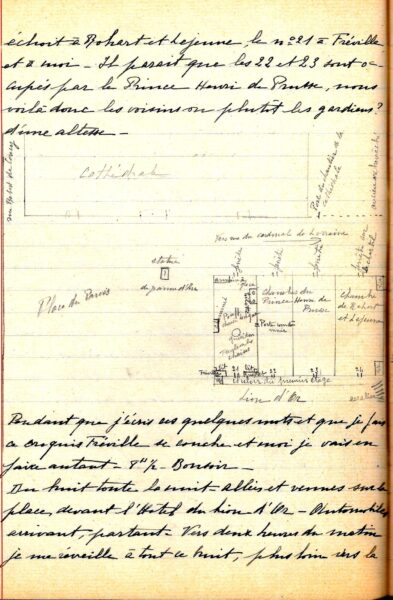 échoit à Rohart et Lejeune, le n° 21 à Tréville
et à moi - Il paraît que les 22 et 23 sont oc-
cupés par le Prince Henri de Prusse, nous
voilà donc les voisins ou plutôt les gardiens?
d'une altesse -
Cathédrale
vers rue du cardinal de Lorraine
statue
Place du Parvis
chambre du Prince Henri de Prusse
chambre de Rohart et Lejeune
Porte condamnée
21 22 23 24
couloir du premier étage
Lion d'Or
Pendant que j'écris ces quelques mots et que je fais
ce croquis Tréville se couche et moi je vais en
faire autant - Bonsoir -
Du bruit toute la nuit - allées et venues sur la
place, devant l'Hotel du Lion d'Or - Automobiles
arrivant, partant - Vers deux heures du matin
je me réveille à tout ce bruit, plus loin vers la